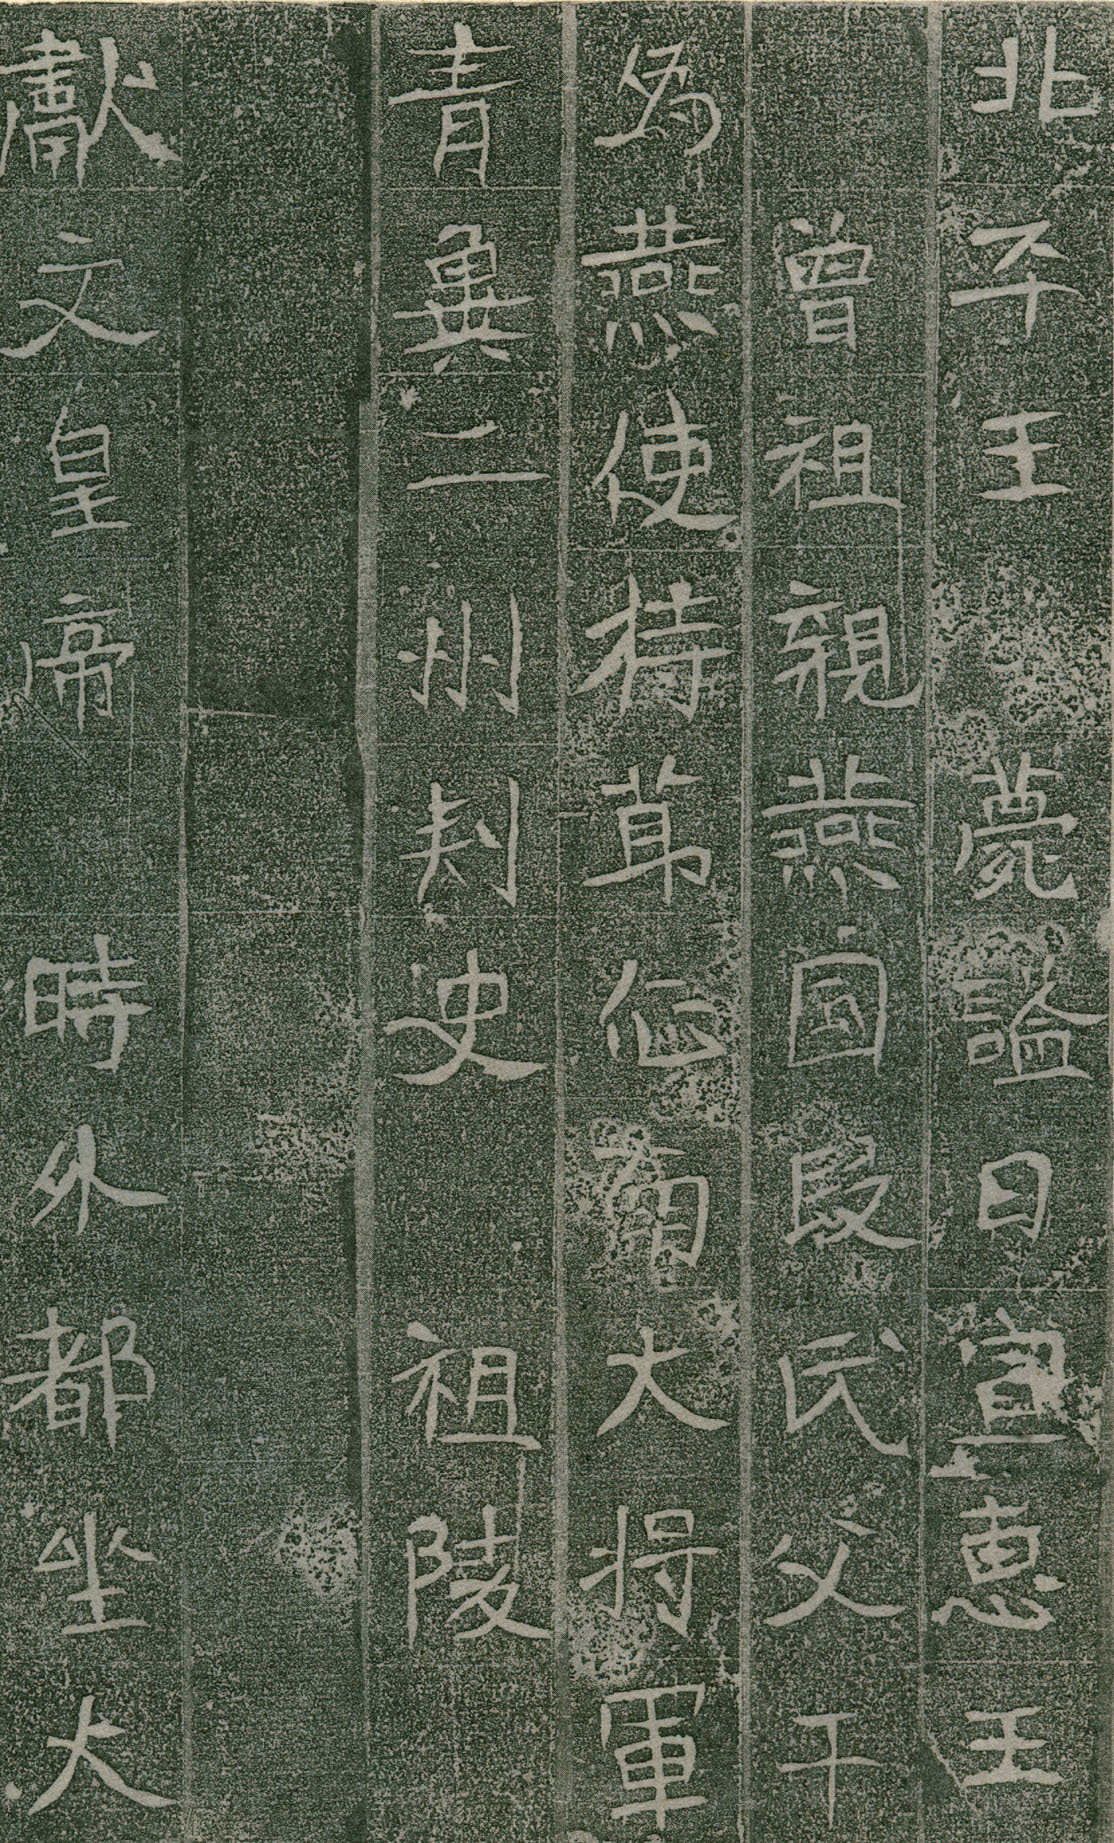 北平王薨謚曰宣惠王
曾祖親燕國段氏父干
為燕使持節征南大將軍
青冀二州刺史祖陵
獻文皇帝時外都坐大